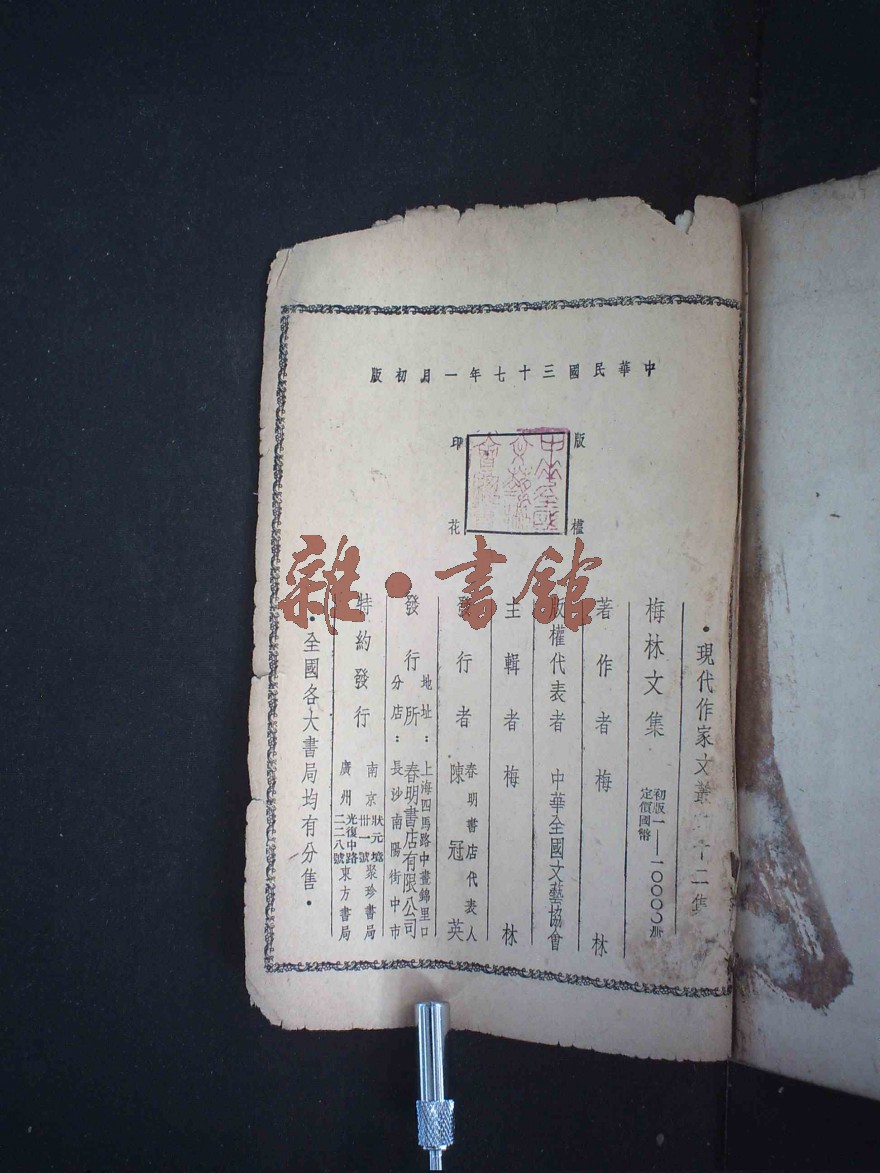 中華民國三十七年一月初版
版權印花
•現代作家文叢 十二集
梅林文集
初版一——10000册
定價國幣
著作者 梅林
版權代表者 中華全國文藝協會
主輯者 梅林
發行者 春明書店代表人 陳冠英
發行所 春明書店有限公司
地址：上海四馬路中晝錦里口
分店：長沙南陽街中市
特約發行
南京狀元境卅一號聚珍書局
廣州光復中路二二八號東方書局
•全國各大書局均有分售•
雜•書館